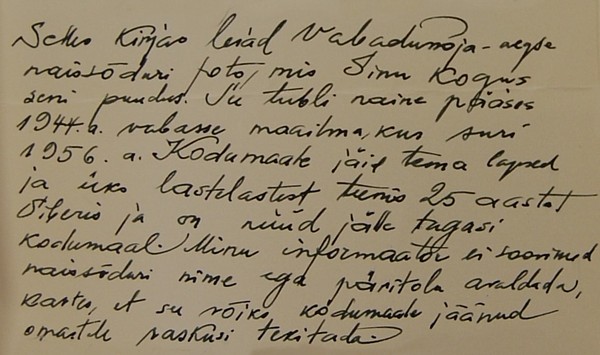 Selles kirjas leiad Vabadussõja-aegse
naissõduri foto, mis Sinu kogus
seni puudus. See tubli naine pääses
1944. a. vabasse maailma, kus suri
1956. a. Kodumaale jäid tema lapsed
ja üks lastelastest teenis 25 aastat
Siberis ja on nüüd jälle tagasi
kodumaal. Minu informaator ei soovinud
naissõduri nime ega päritolu avaldada,
kartes, et see võiks kodumaale jäänud
omastele raskusi tekitada.